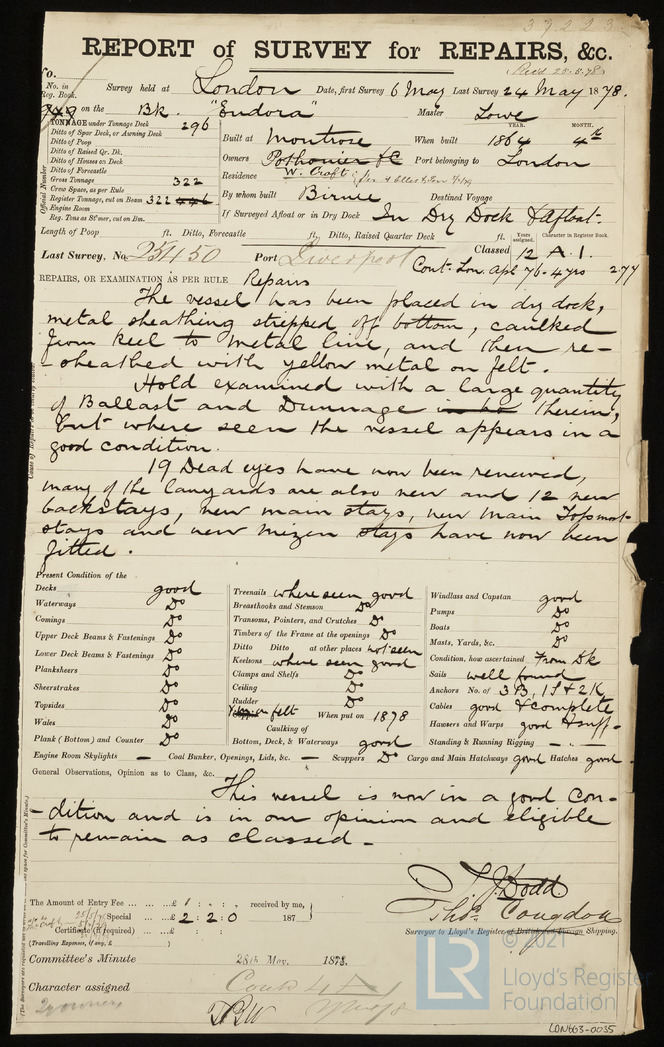 39223
REPORT of SURVEY for REPAIRS, &c.
Recd 25.5.78
No.
No. in Reg. Book.
Survey held at London Date, first Survey 6 May Last Survey 24 May 1878.
on the Bk. "Eudora" Master Lowe
TONNAGE under Tonnage Deck 296
Ditto of Spar Deck, or Awning Deck
Ditto of Poop
Ditto of Raised Qr. Dk.
Ditto of Houses on Deck
Ditto of Forecastle
Gross Tonnage 322
Crew Space, as per Rule
Register Tonnage, cut on Beam 322
Engine Room
Reg. Tons as St'mer, cut on Bm.
Official Number
YEAR. MONTH.
Built at Montrose When built 1864 4th
Owners Port belonging to London
Residence W. Croft
By whom built Birnie Destined Voyage
If Surveyed Afloat or in Dry Dock In Dry Dock & Afloat.
Length of Poop ft. Ditto, Forecastle ft., Ditto, Raised Quarter Deck ft.
Years assigned. Character in Register Book.
Last Survey, No. 25450 Port Liverpool Classed 12 A.1.
Cont. Lon. Apl 76-4yrs 2.77
REPAIRS, OR EXAMINATION AS PER RULE Repairs
The vessel has been placed in dry dock,
metal sheathing stripped off bottom, caulked
from keel to metal line, and then re-
-sheathed with yellow metal on felt.
Hold examined with a large quantity
of Ballast and Dunnage therein,
but where seen the vessel appears in a
good condition.
19 Dead eyes have now been renewed,
many of the lanyards are also new and 12 new
backstays, new main stays, new main Topmost-
stays and new mizen stays have now been
fitted.
Present Condition of the
Decks good
Waterways Do
Comings Do
Upper Deck Beams & Fastenings Do
Lower Deck Beams & Fastenings Do
Planksheers Do
Sheerstrakes Do
Topsides Do
Wales Do
Plank (Bottom) and Counter Do
Treenails where seen good
Breasthooks and Stemson Do
Transoms, Pointers, and Crutches Do
Timbers of the Frame at the openings Do
Ditto Ditto at other places not seen
Keelsons where seen good
Clamps and Shelfs Do
Ceiling Do
Rudder Do
Y.M. on felt When put on 1878
Caulking of
Bottom, Deck, & Waterways good
Windlass and Capstan good
Pumps Do
Boats Do
Masts, Yards, &c. Do
Condition, how ascertained From Dk
Sails well found
Anchors No. of 3B, 1S & 2K
Cables good & complete
Hawsers and Warps good & suff.
Standing & Running Rigging -
Engine Room Skylights — Coal Bunker, Openings, Lids, &c. — Scuppers Do Cargo and Main Hatchways good Hatches good.
General Observations, Opinion as to Class, &c.
This vessel is now in a good con-
-dition and is in our opinion and eligible
to remain as classed.
T.J. Dodd
Thos. Congdon
Surveyor to Lloyd's Register of British and Foreign Shipping.
The Amount of Entry Fee ... £ 1 : . : received by me,
Special ... £ 2 : 2 : 0 187
Certificate (if required) ...
(Travelling Expenses, if any, £ )
Committee's Minute 28th May, 1878.
Character assigned
© 2021
LR
Lloyd's Register
Foundation
LON663-0035